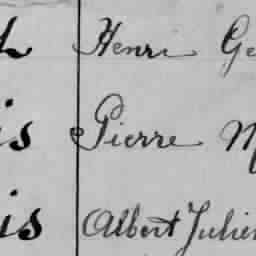 Henri
is Pierre
is Albert Julien